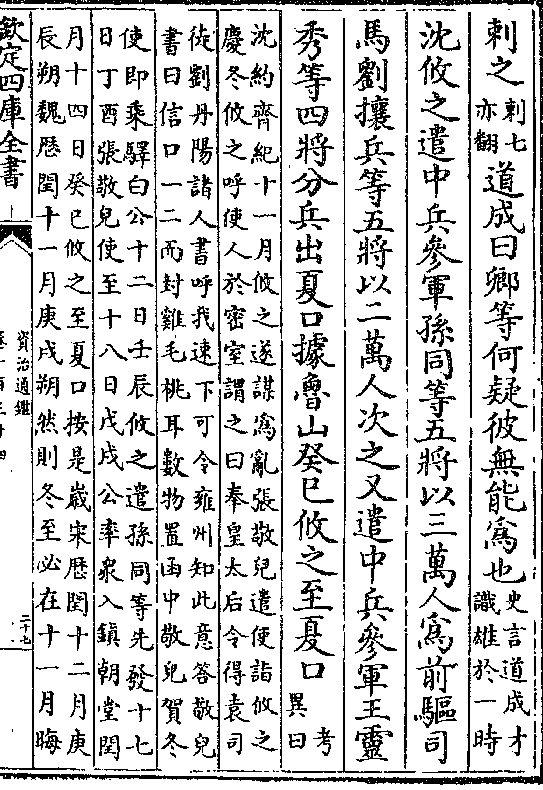 刺之刺七亦翻道成曰卿等何疑彼無能為也史言道成才識雄於一時
沈攸之遣中兵參軍孫同等五將以三萬人為前驅司
馬劉攘兵等五將以二萬人次之又遣中兵參軍王靈
秀等四將分兵出夏口據魯山癸巳攸之至夏口考異曰
沈約齊紀十一月攸之遂謀為亂張敬兒遣使詣攸之
慶冬攸之呼使人於密室謂之曰奉皇太后令得袁司
徒劉丹陽諸人書呼我速下可令雍州知此意答敬兒
書曰信口一二而封雞毛桃耳數物置函中敬兒賀冬
使即乘驛白公十二日壬辰攸之遣孫同等先發十七
日丁酉張敬兒使至十八日戊戌公率衆入鎮朝堂閏
月十四日癸巳攸之至夏口按是歲宋歷閏十二月庚
辰朔魏歷閏十一月庚戌朔然則冬至必在十一月晦
欽定四庫全書
資治通鑑
卷一百三十四
二十七